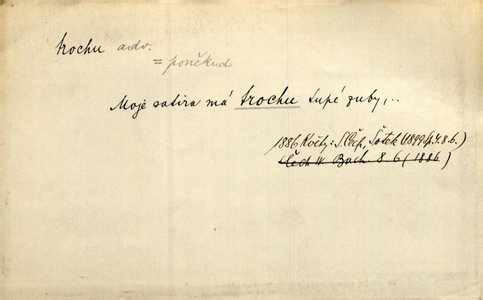 trochu adv.
= poněkud
Moje satira má trochu tupé zuby,..
1886 Květy: S. Čech, Šotek (1899 p. 4. 8. 6.)
Čech IV. Bach 8. 6 (1886)